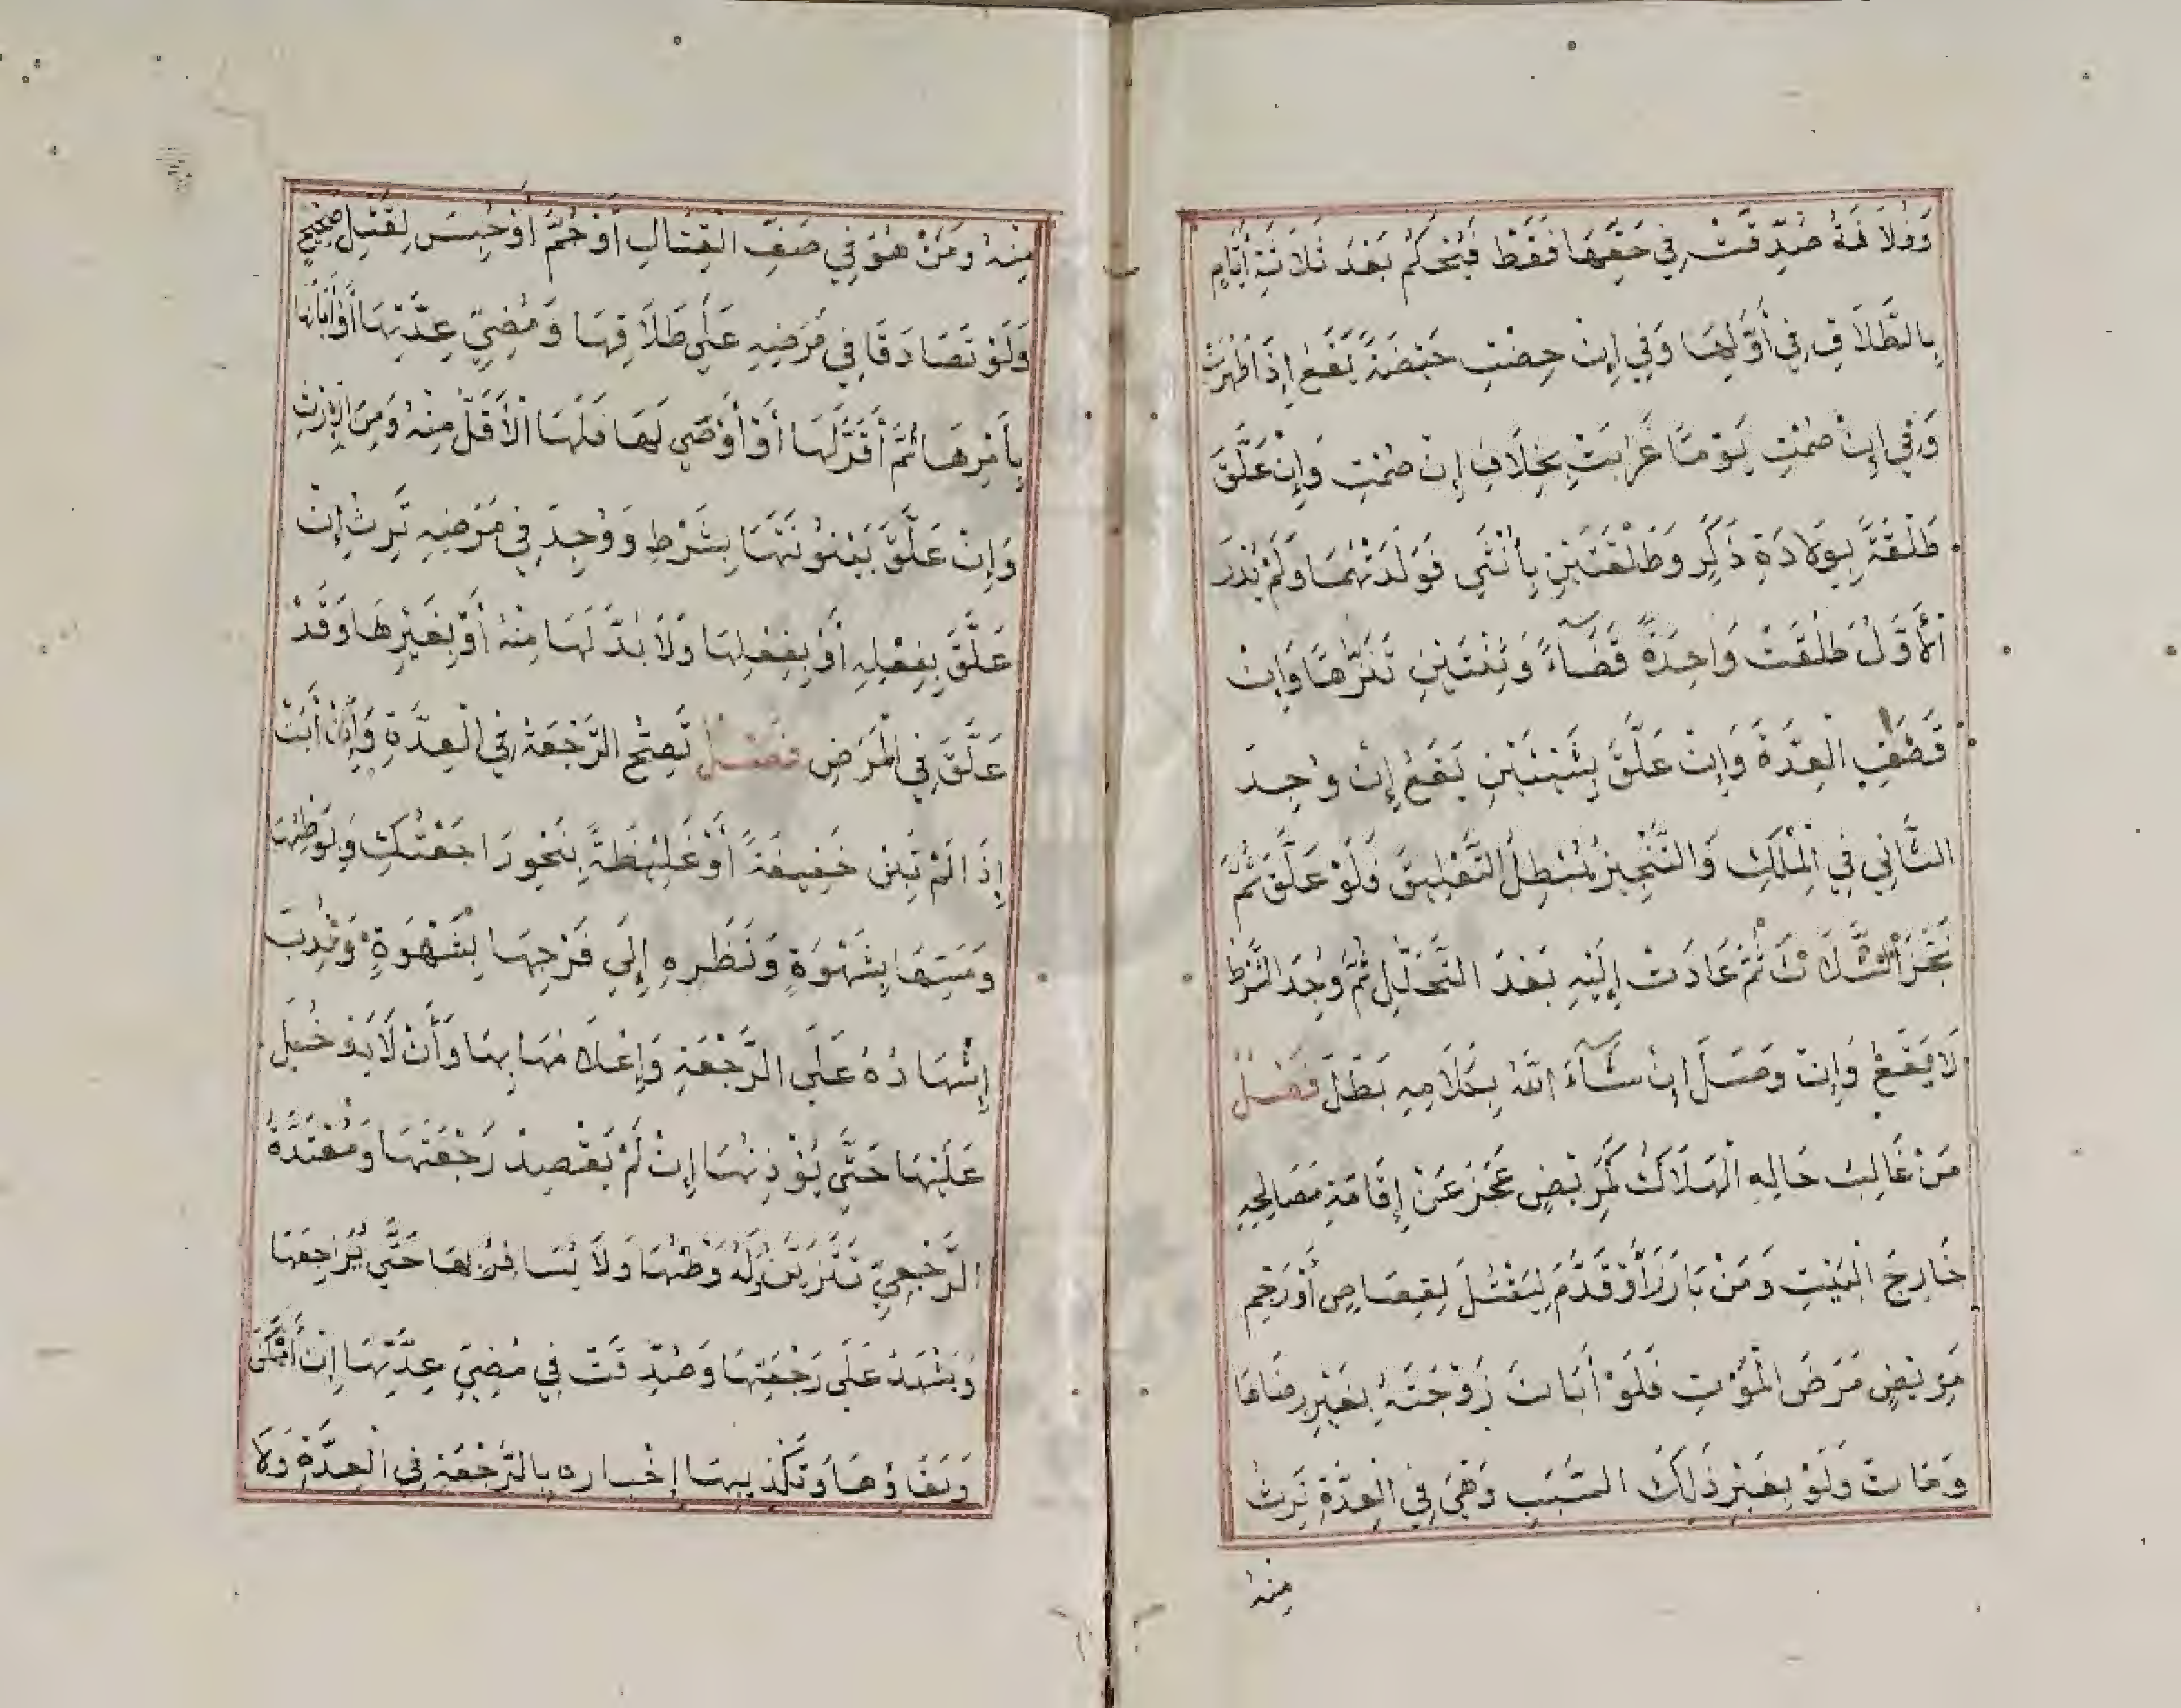 وَفُلَانَةُ صُدِّقَتْ فِي حَقِّهَا فَقَطْ فَيُحْكَمُ بَعْدَ ثَلَاثَةِ أَيَّامٍ
بِالطَّلَاقِ فِي أَوَّلِهَا وَفِي إِنْ حِضْتِ حَيْضَةً يَقَعُ إِذَا طَهُرَتْ
وَفِي إِنْ صُمْتِ يَوْمًا غَرَبَتْ بِخِلَافِ إِنْ صُمْتِ وَإِنْ عَلَّقَ
طَلْقَةً بِوِلَادَةِ ذَكَرٍ وَطَلْقَتَيْنِ بِأُنْثَى فَوَلَدَتْهُمَا وَلَمْ يُدْرَ
الْأَوَّلُ طَلُقَتْ وَاحِدَةً قَضَآءً وَثِنْتَيْنِ تَنَزُّهًا وَإِنْ
قَضَتِ الْعِدَّةَ وَإِنْ عَلَّقَ بِشَيْئَيْنِ يَقَعُ إِنْ وُجِدَ
الثَّانِي فِي الْمِلْكِ وَالتَّنْجِيزُ يُبْطِلُ التَّعْلِيقَ فَلَوْ عَلَّقَ ثُمَّ
نَجَّزَ الثَّلَاثَ ثُمَّ عَادَتْ إِلَيْهِ بَعْدَ التَّحْلِيلِ ثُمَّ وُجِدَ الشَّرْطُ
لَا يَقَعُ وَإِنْ وَصَلَ إِنْ شَآءَ اللَّهُ بِكَلَامِهِ بَطَلَ فَصْلٌ
مَنْ غَالِبُ حَالِهِ الْهَلَاكُ كَمَرِيضٍ عَجَزَ عَنْ إِقَامَةِ مَصَالِحِهِ
خَارِجَ الْبَيْتِ وَمَنْ بَارَزَ أَوْ قُدِّمَ لِيُقْتَلَ لِقِصَاصٍ أَوْ رَجْمٍ
مَرِيضٍ مَرَضَ الْمَوْتِ فَلَوْ أَبَانَ زَوْجَتَهُ بِغَيْرِ رِضَاهَا
وَمَاتَ وَلَوْ بِغَيْرِ ذَلِكَ السَّبَبِ وَهْيَ فِي الْعِدَّةِ تَرِثُ
مِنْهُ
مِنْهُ وَمَنْ هُوَ فِي صَفِّ الْقِتَالِ أَوْ حُمَّ أَوْ حُبِسَ لِقَتْلٍ صَحِيحٌ
وَلَوْ تَصَادَقَا فِي مَرَضِهِ عَلَى طَلَاقِهَا وَمُضِيِّ عِدَّتِهَا أَوْ أَبَانَهَا
بِأَمْرِهَا ثُمَّ أَقَرَّ لَهَا أَوْ أَوْصَى لَهَا فَلَهَا الْأَقَلُّ مِنْهُ وَمِنَ الْإِرْثِ
وَإِنْ عَلَّقَ بَيْنُونَتَهَا بِشَرْطٍ وَوُجِدَ فِي مَرَضِهِ تَرِثُ إِنْ
عَلَّقَ بِفِعْلِهِ أَوْ بِفِعْلِهَا وَلَا بُدَّ لَهَا مِنْهُ أَوْ بِغَيْرِهَا وَقَدْ
عَلَّقَ فِي الْمَرَضِ فَصْلٌ تَصِحُّ الرَّجْعَةُ فِي الْعِدَّةِ وَإِنْ أَبَتْ
إِذَا لَمْ تَبِنْ خَفِيفَةً أَوْ غَلِيظَةً بِنَحْوِ رَاجَعْتُكِ وَبِوَطْئِهَا
وَمَسِّهَا بِشَهْوَةٍ وَنَظَرِهِ إِلَى فَرْجِهَا بِشَهْوَةٍ وَنُدِبَ
إِشْهَادُهُ عَلَى الرَّجْعَةِ وَإِعْلَامُهَا بِهَا وَأَنْ لَا يَدْخُلَ
عَلَيْهَا حَتَّى يُؤْذِنَهَا إِنْ لَمْ يَقْصِدْ رَجْعَتَهَا وَمُعْتَدَّةُ
الرَّجْعِيِّ تَتَزَيَّنُ لَهُ وَطْئُهَا وَلَا يُسَافِرُ بِهَا حَتَّى يُرَاجِعَهَا
وَيُشْهِدُ عَلَى رَجْعَتِهَا وَصُدِّقَتْ فِي مُضِيِّ عِدَّتِهَا إِنْ أَمْكَنَ
وَبَقَاؤُهَا وَتَكْذِيبِهَا إِخْبَارِهِ بِالرَّجْعَةِ فِي الْعِدَّةِ وَلَا